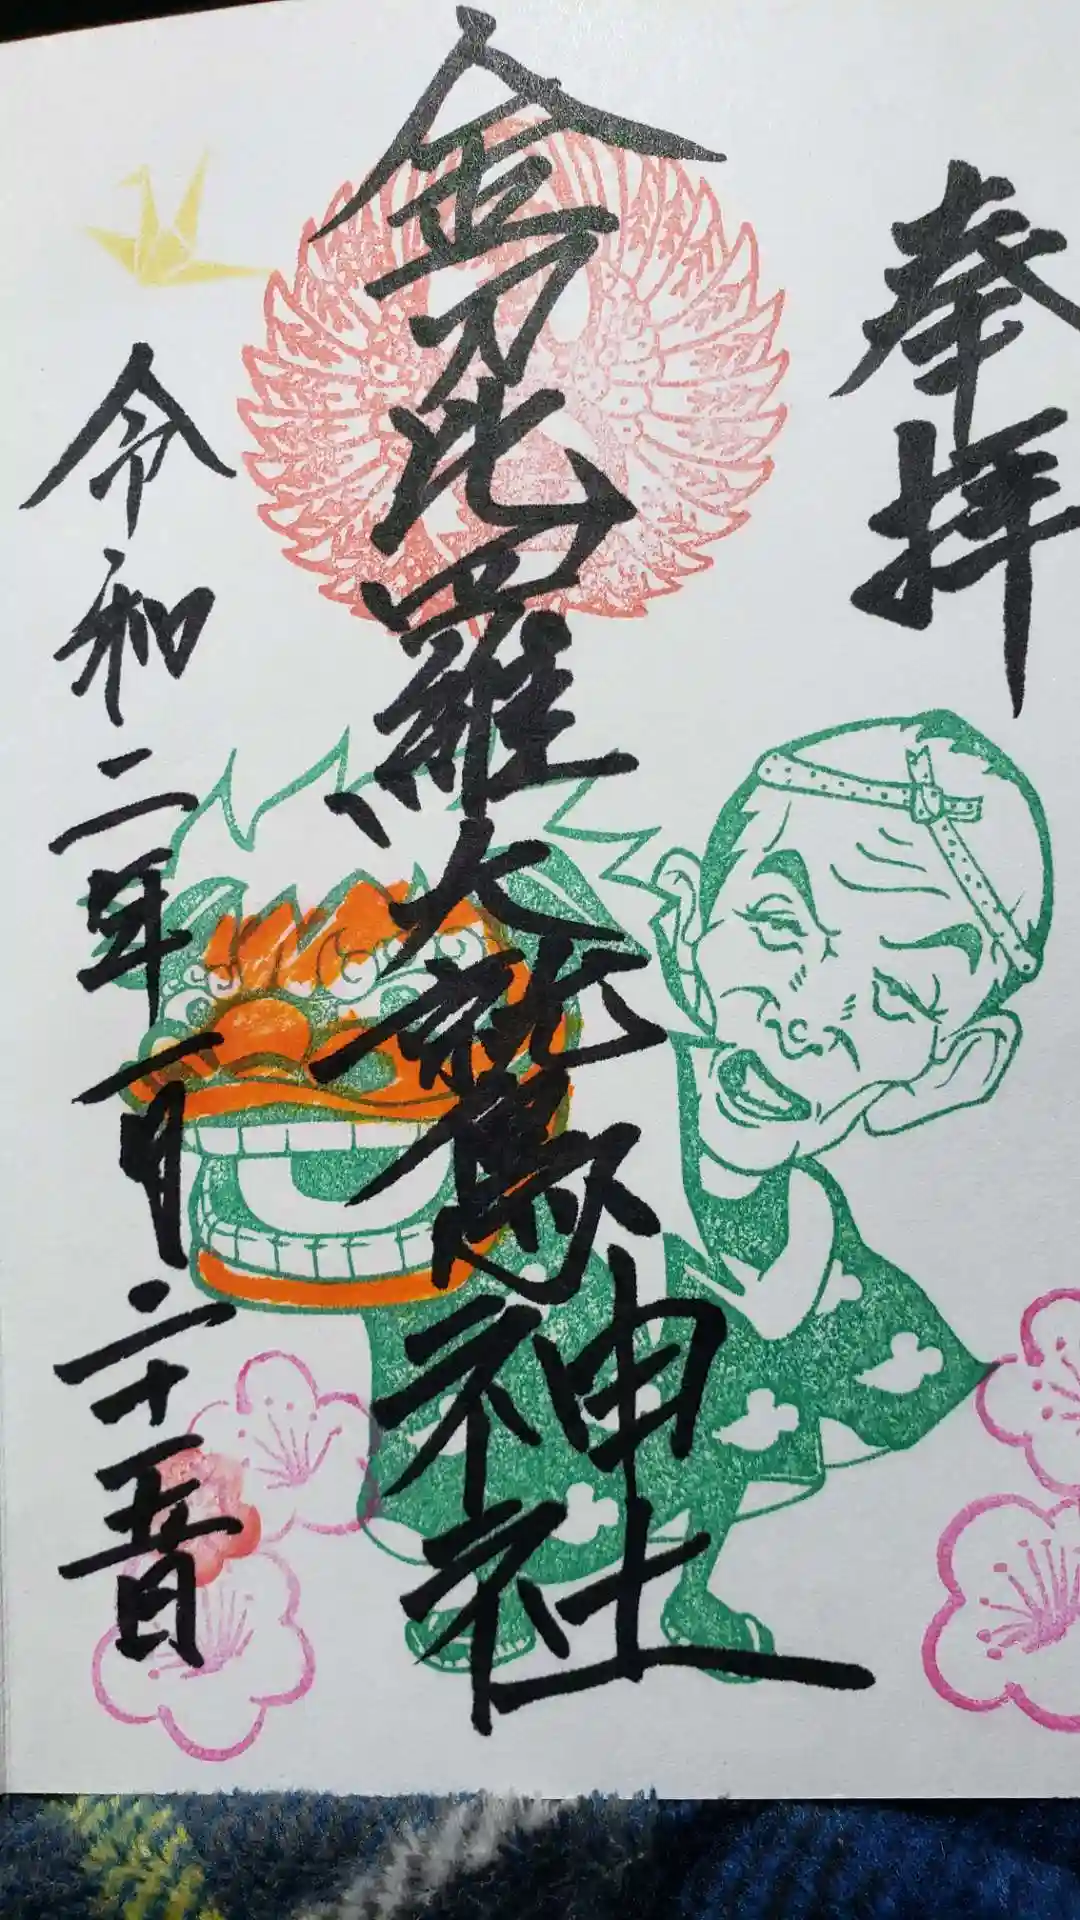 奉拝
金刀比羅大鷲神社
令和二年二月二十五日